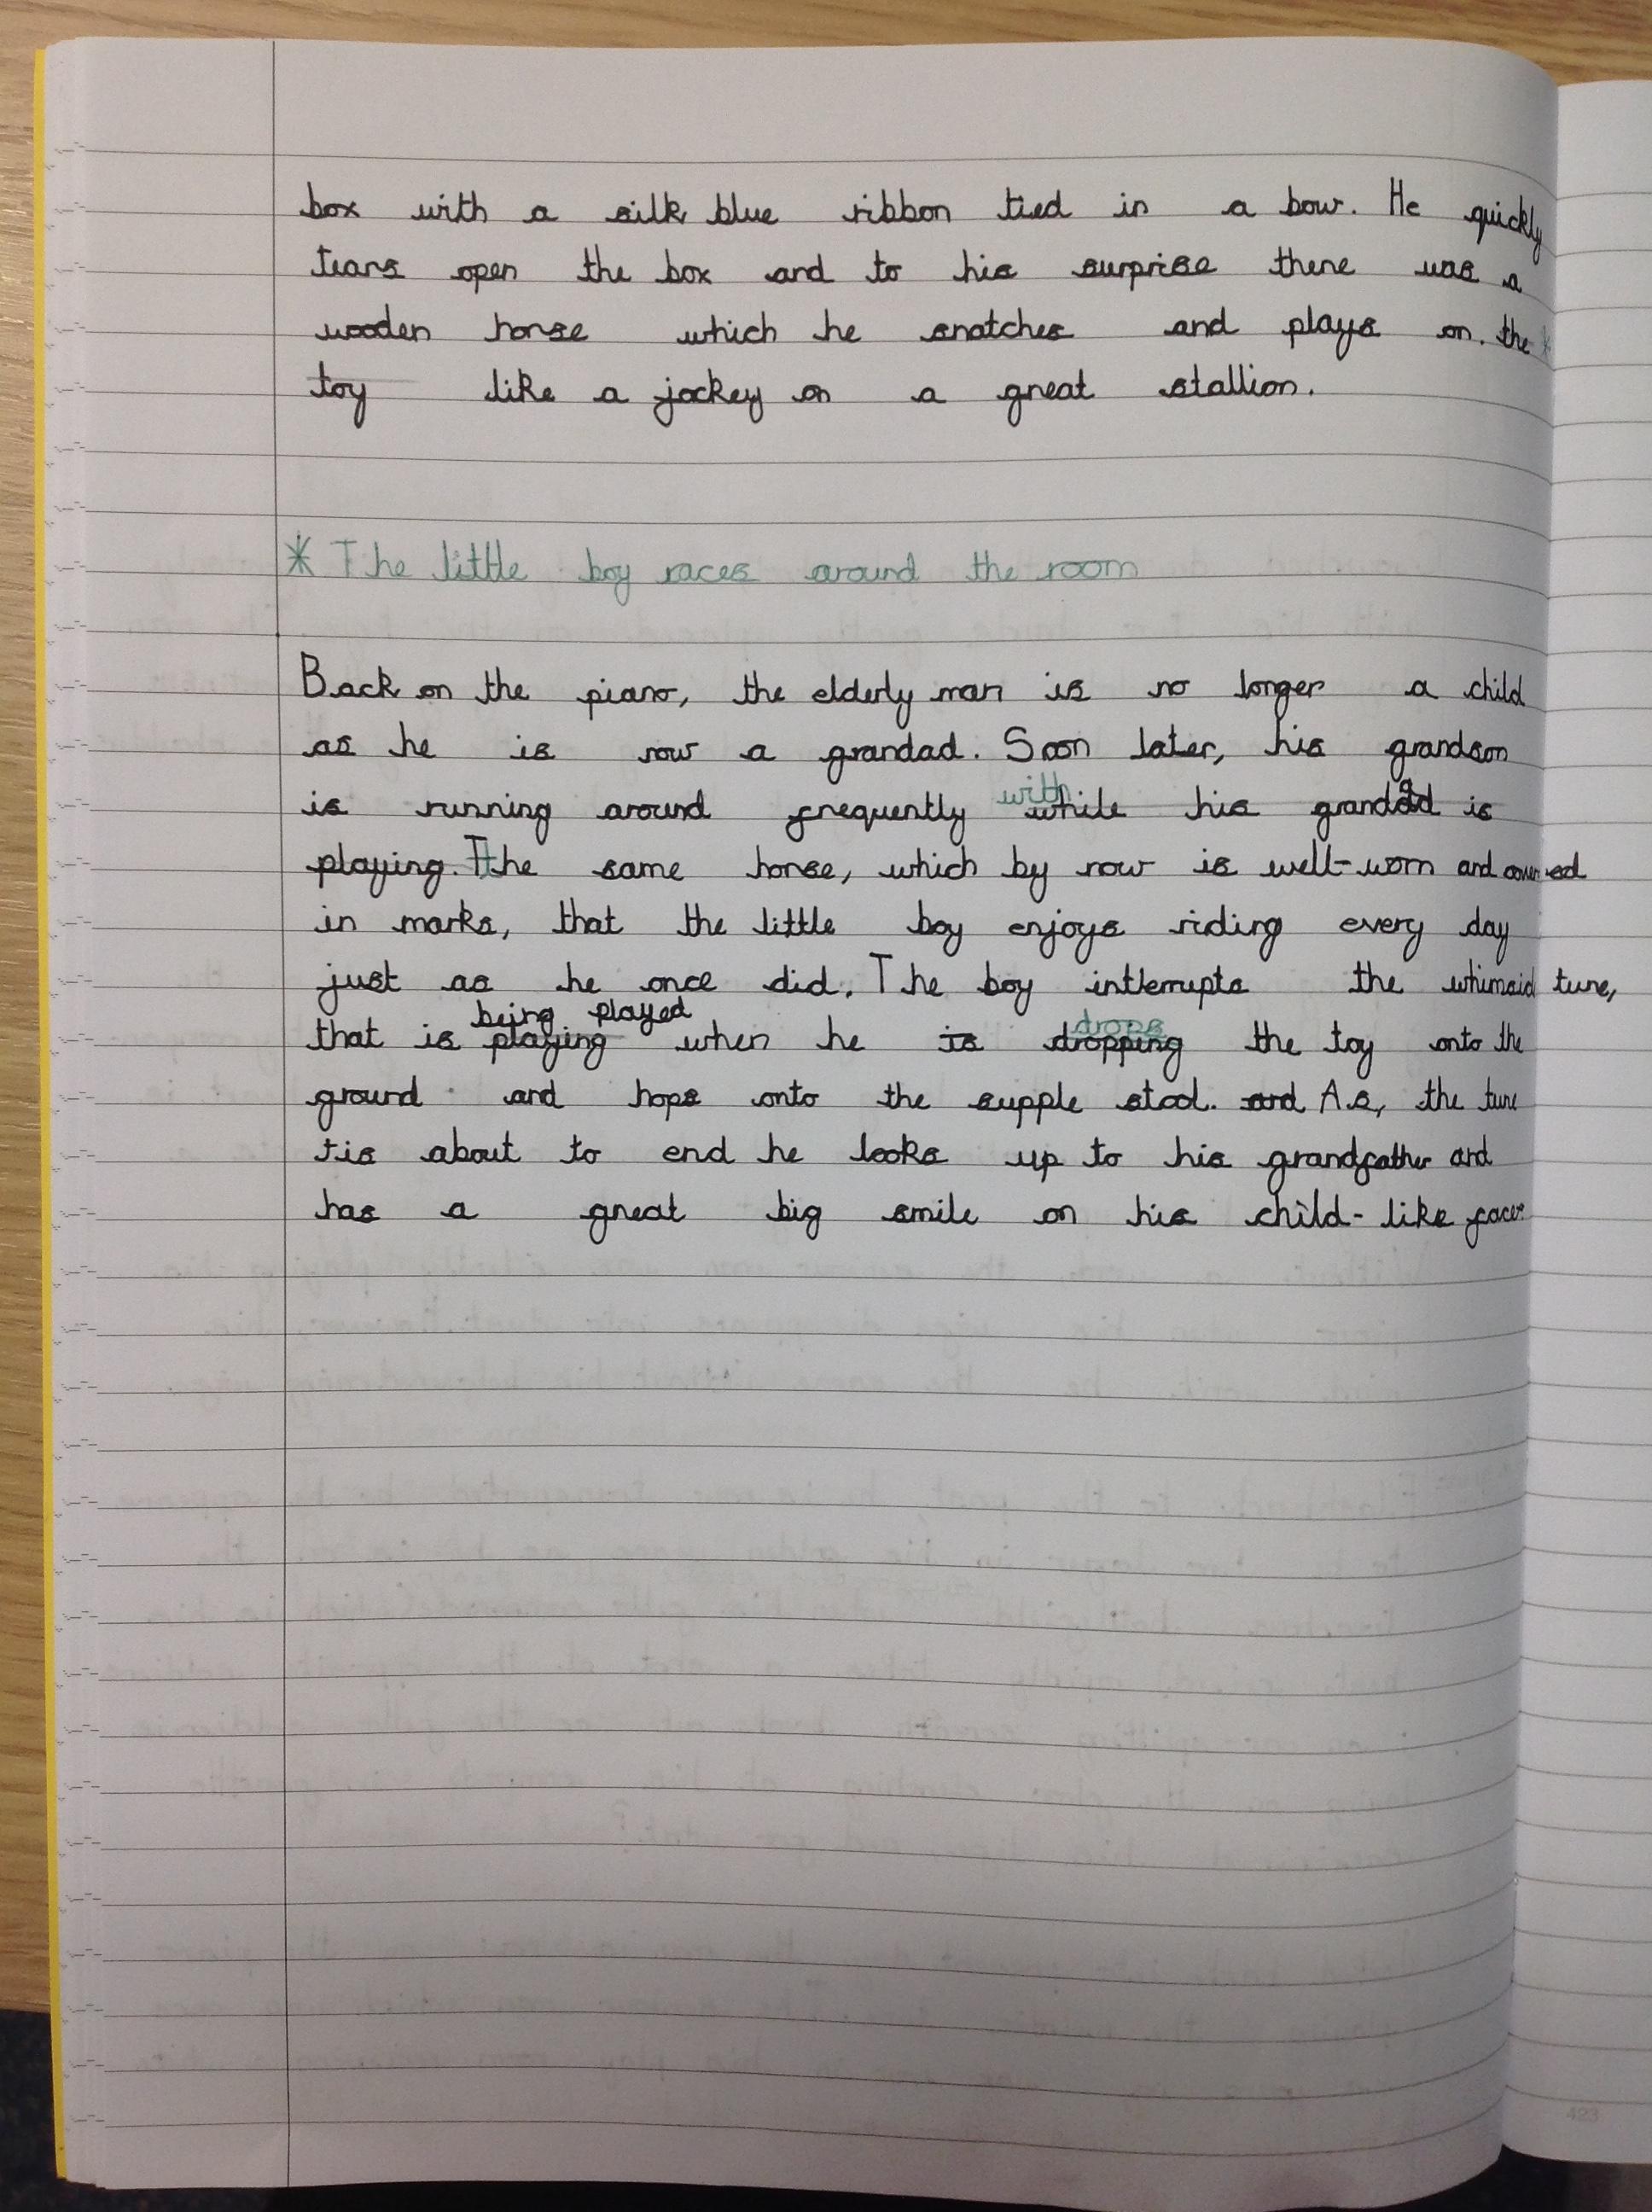 box with a silk blue ribbon tied in a bow. He quickly
tears open the box and to his surprise there was a
wooden horse which he snatches and plays on. the *
toy like a jockey on a great stallion.
* The little boy races around the room
Back on the piano, the elderly man is no longer a child
as he is now a grandad. Soon later, his grandson
with
is running around frequently while his grandad is
playing. The same horse, which by now is well-worn and covered
in marks, that the little boy enjoys riding every day
just as he once did. The boy intterupts the whimsid tune,
being played drops
that is playing when he is dropping the toy onto the
ground and hops onto the supple stool. and As, the tune
tis about to end he looks up to his grandfather and
has a great big smile on his child-like face.
423